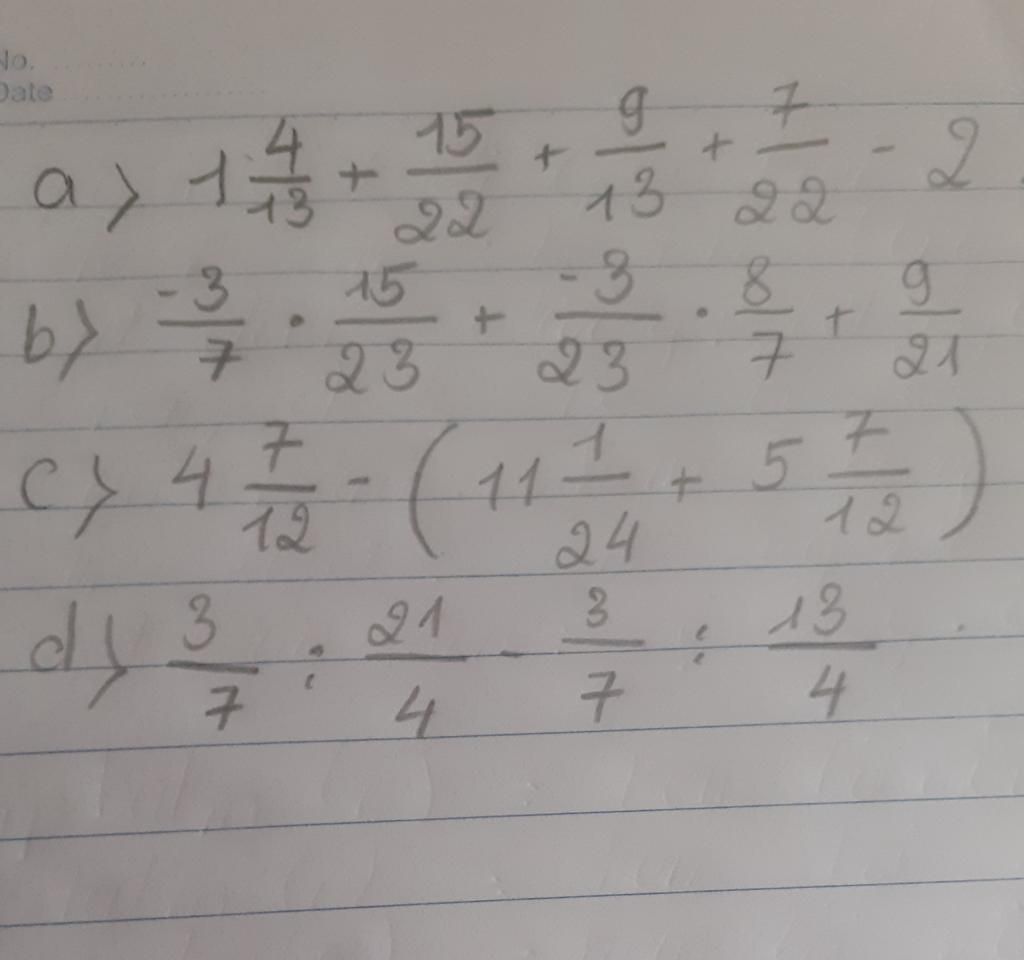 No. ............
Date ............
a) 1 4/13 + 15/22 + 9/13 + 7/22 - 2
b) -3/7 · 15/23 + -3/23 · 8/7 + 9/21
c) 4 7/12 - ( 11 1/24 + 5 7/12 )
d) 3/7 : 21/4 - 3/7 : 13/4